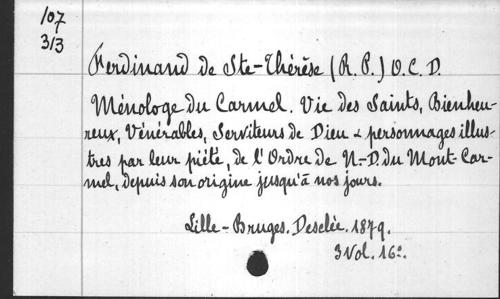 107
313
Ferdinand de Ste-Thérèse (R. P.) O. C. D.
Ménologe du Carmel. Vie des Saints, Bienheu-
reux, Vénérables, Serviteurs de Dieu & personnages illus-
tres par leur piété, de l'Ordre de N-D. du Mont-Car-
mel, depuis son origine jusqu'à nos jours.
Lille-Bruges. Desclée. 1879.
3 Vol. 16º.